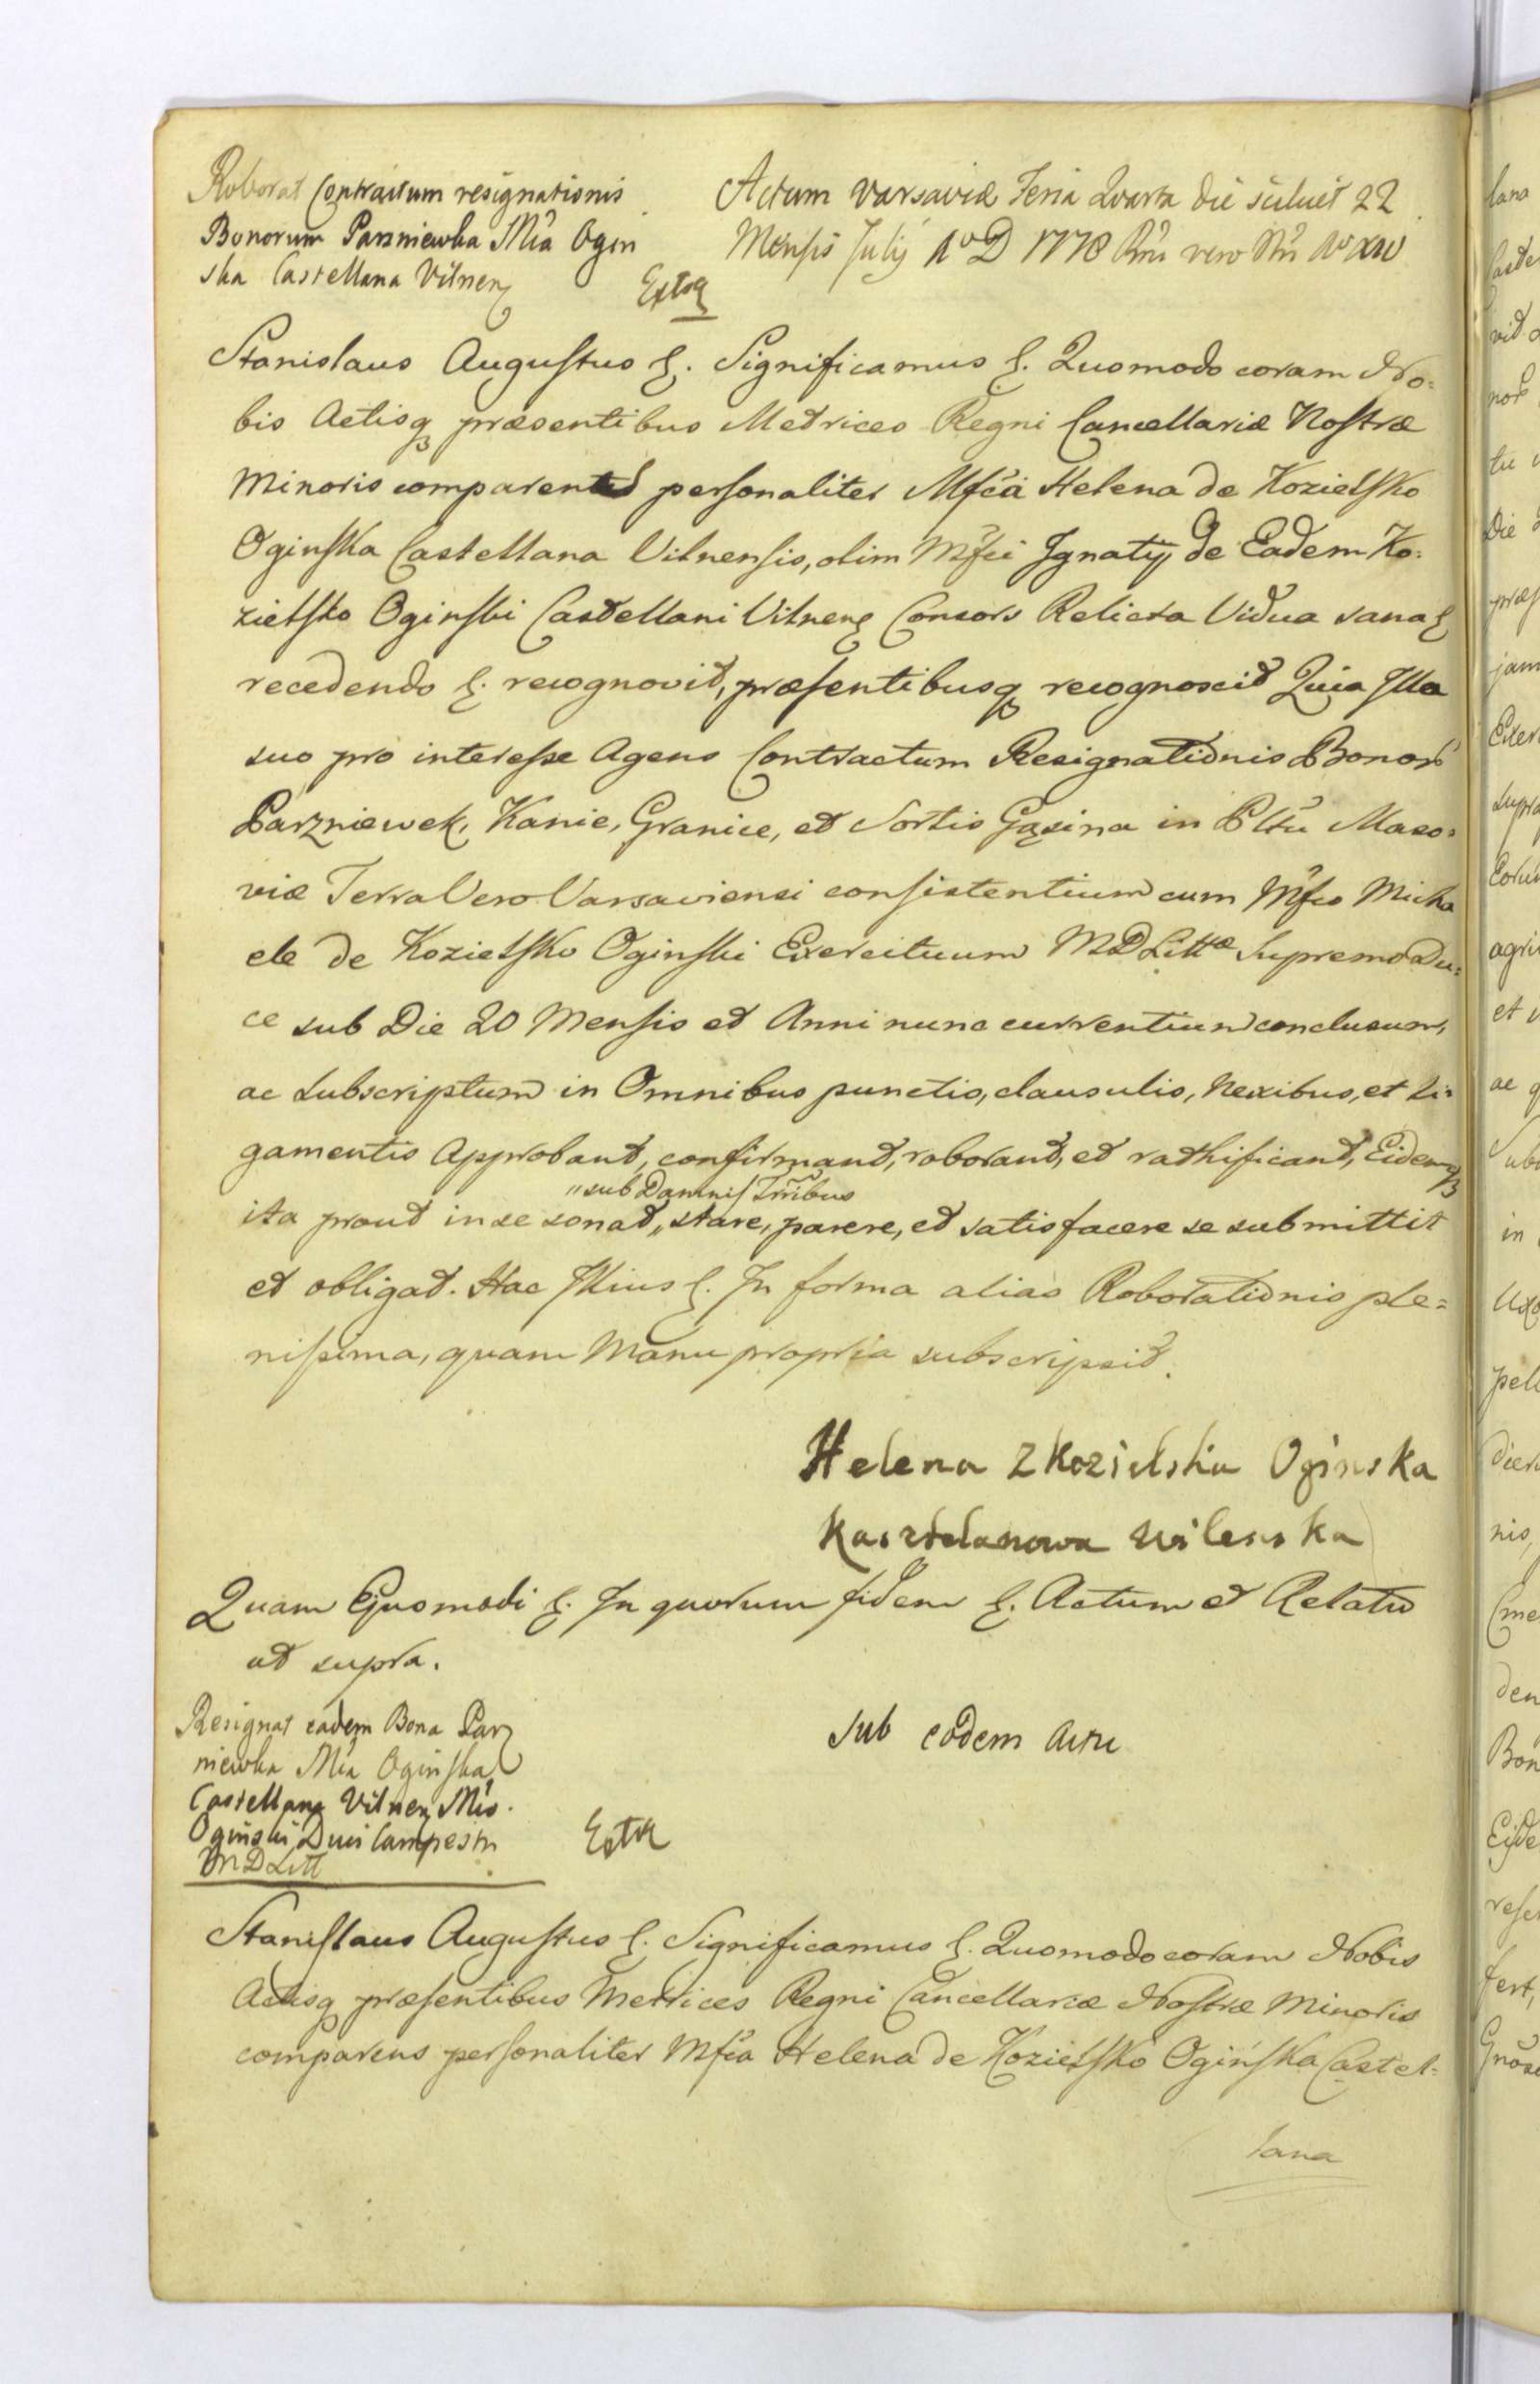 Roborat Contractum resignationis
Bonorum Parzniewka Mła Ogin
ska Castellana Vilnen
Extra
Actum Varsaviæ Feria Quarta Die scilicet 22
Mensis Julij Aº D 1778 Rni vero Nri Aº XIV
Stanislaus Augustus &. Significamus &. Quomodo coram No=
bis Actisq præsentibus Metrices Regni Cancellariæ Nostræ
Minoris comparens personaliter Mfca Helena de Kozielsko
Oginska Castellana Vilnensis, olim Mfci Ignatij de Eadem Ko=
zielsko Oginski Castellani Vilnen Consors Relicta Vidua sana &
recedendo &. recognovit, præsentibusq recognoscit Quia Illa
suo pro interesse Agens Contractum Resignationis Bonor
Parzniewek, Kanie, Granice, et Sortis Gąsina in Pltu Maso=
viæ Terra Vero Varsaviensi consistentium cum Mfco Micha
ele de Kozielsko Oginski Exercituum MDLittæ Supremo Du=
ce sub Die 20 Mensis et Anni nunc currentium conclusum,
ac subscriptum in Omnibus punctis, clausulis, Nexibus, et li=
gamentis Approband, confirmand, roborand, et rathificand, Eidemq
„sub Damnis Trribus
ita prout in se sonat„ stare, parere, et satisfacere se submittit
et obligat. Hac Illius &. In forma alias Roborationis ple=
nissima, quam Manu propria subscripsit.
Helena z Kozielska Oginska
Kasztelanowa Wilenska
Quam Ejusmodi &. In quorum fidem &. Actum et Relatio
ut supra.
Resignat eadem Bona Parz
niewka Mła Oginska
Castellana Vilnen Mło.
Oginski Duci Campestri
MDLitt
Extra
Sub eodem Actu
Stanislaus Augustus &. Significamus &. Quomodo coram Nobis
Actisq præsentibus Metrices Regni Cancellariæ Nostræ Minoris
comparens personaliter Mfca Helena de Kozielsko Ogińska Castel=
lana